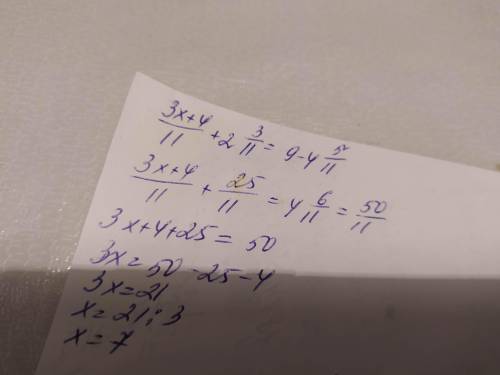 (3x+4)/11 + 2 3/11 = 9 - 4 5/11
(3x+4)/11 + 25/11 = 4 6/11 = 50/11
3x+4+25 = 50
3x = 50 - 25 - 4
3x = 21
x = 21 : 3
x = 7